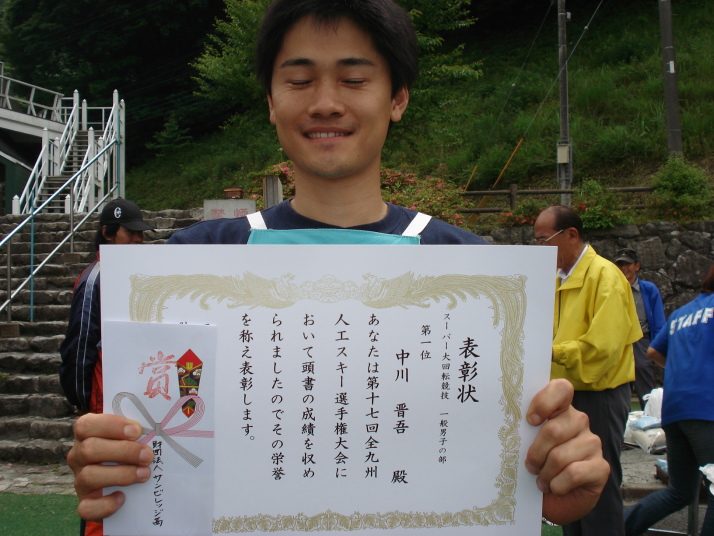 表彰状
スーパー大回転競技 一般男子の部
第一位
中川 晋吾 殿
あなたは第十七回全九州
人工スキー選手権大会に
おいて頭書の成績を収め
られましたのでその栄誉
を称え表彰します。
賞
財団法人 サンビレッジ茜
STAFF
C